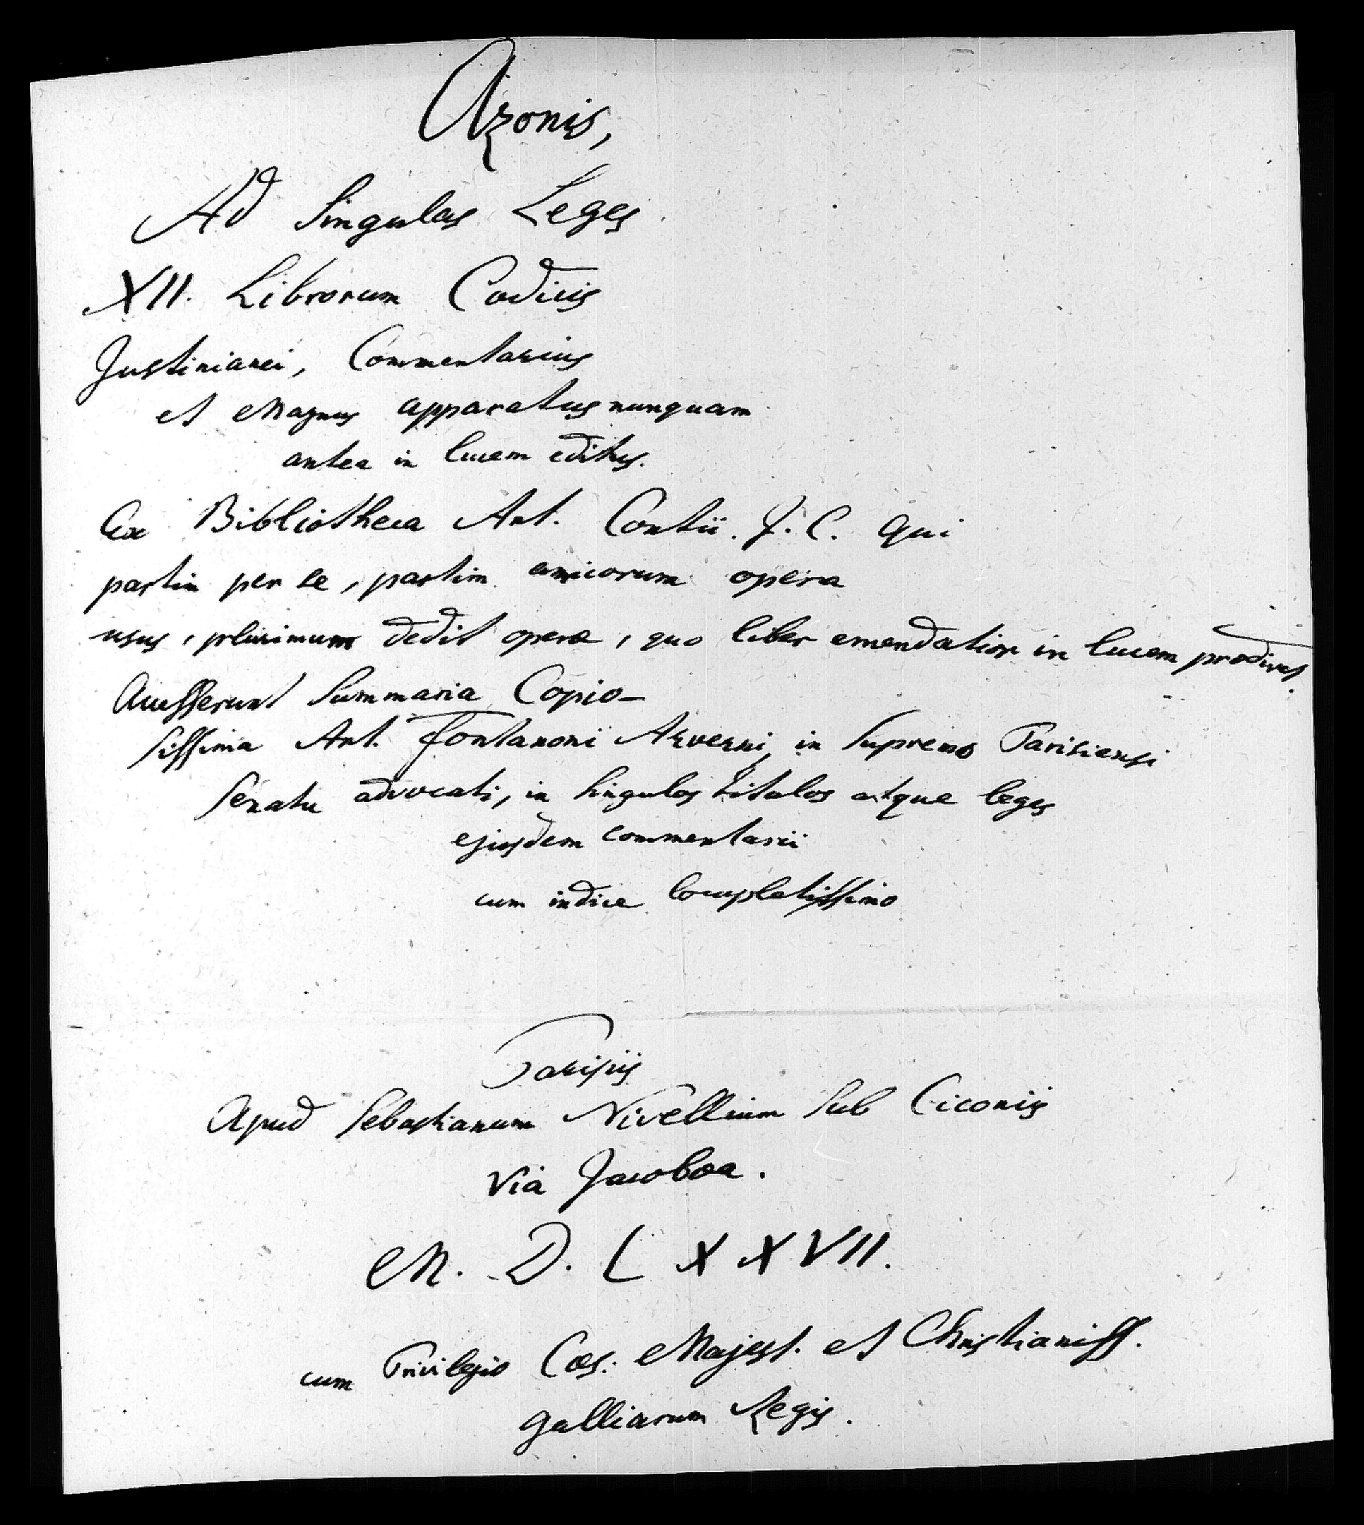 Azonis,
Ad Singulas Leges
XII. Librorum Codicis
Justinianei, Commentarius
et Magnus apparatus nunquam
antea in lucem editus.
Ex Bibliotheca Ant. Contii. J. C. qui
partim per se, partim amicorum opera
usus, plurimum dedit operæ, quo liber emendatior in lucem prodiret.
Accesserunt Summaria Copio-
sissima Ant. Fontanoni Arverni, in Supremo Parisiensi
Senatu advocati, in singulos titulos atque leges
ejusdem commentarii
cum indice locupletissimo
Parisiis
Apud Sebastianum Nivellium Sub Ciconiis
via Jacobœa.
M. D. L X X VII.
cum Privilegio Cæs. Majest. et Christianiss.
Galliarum Regis.